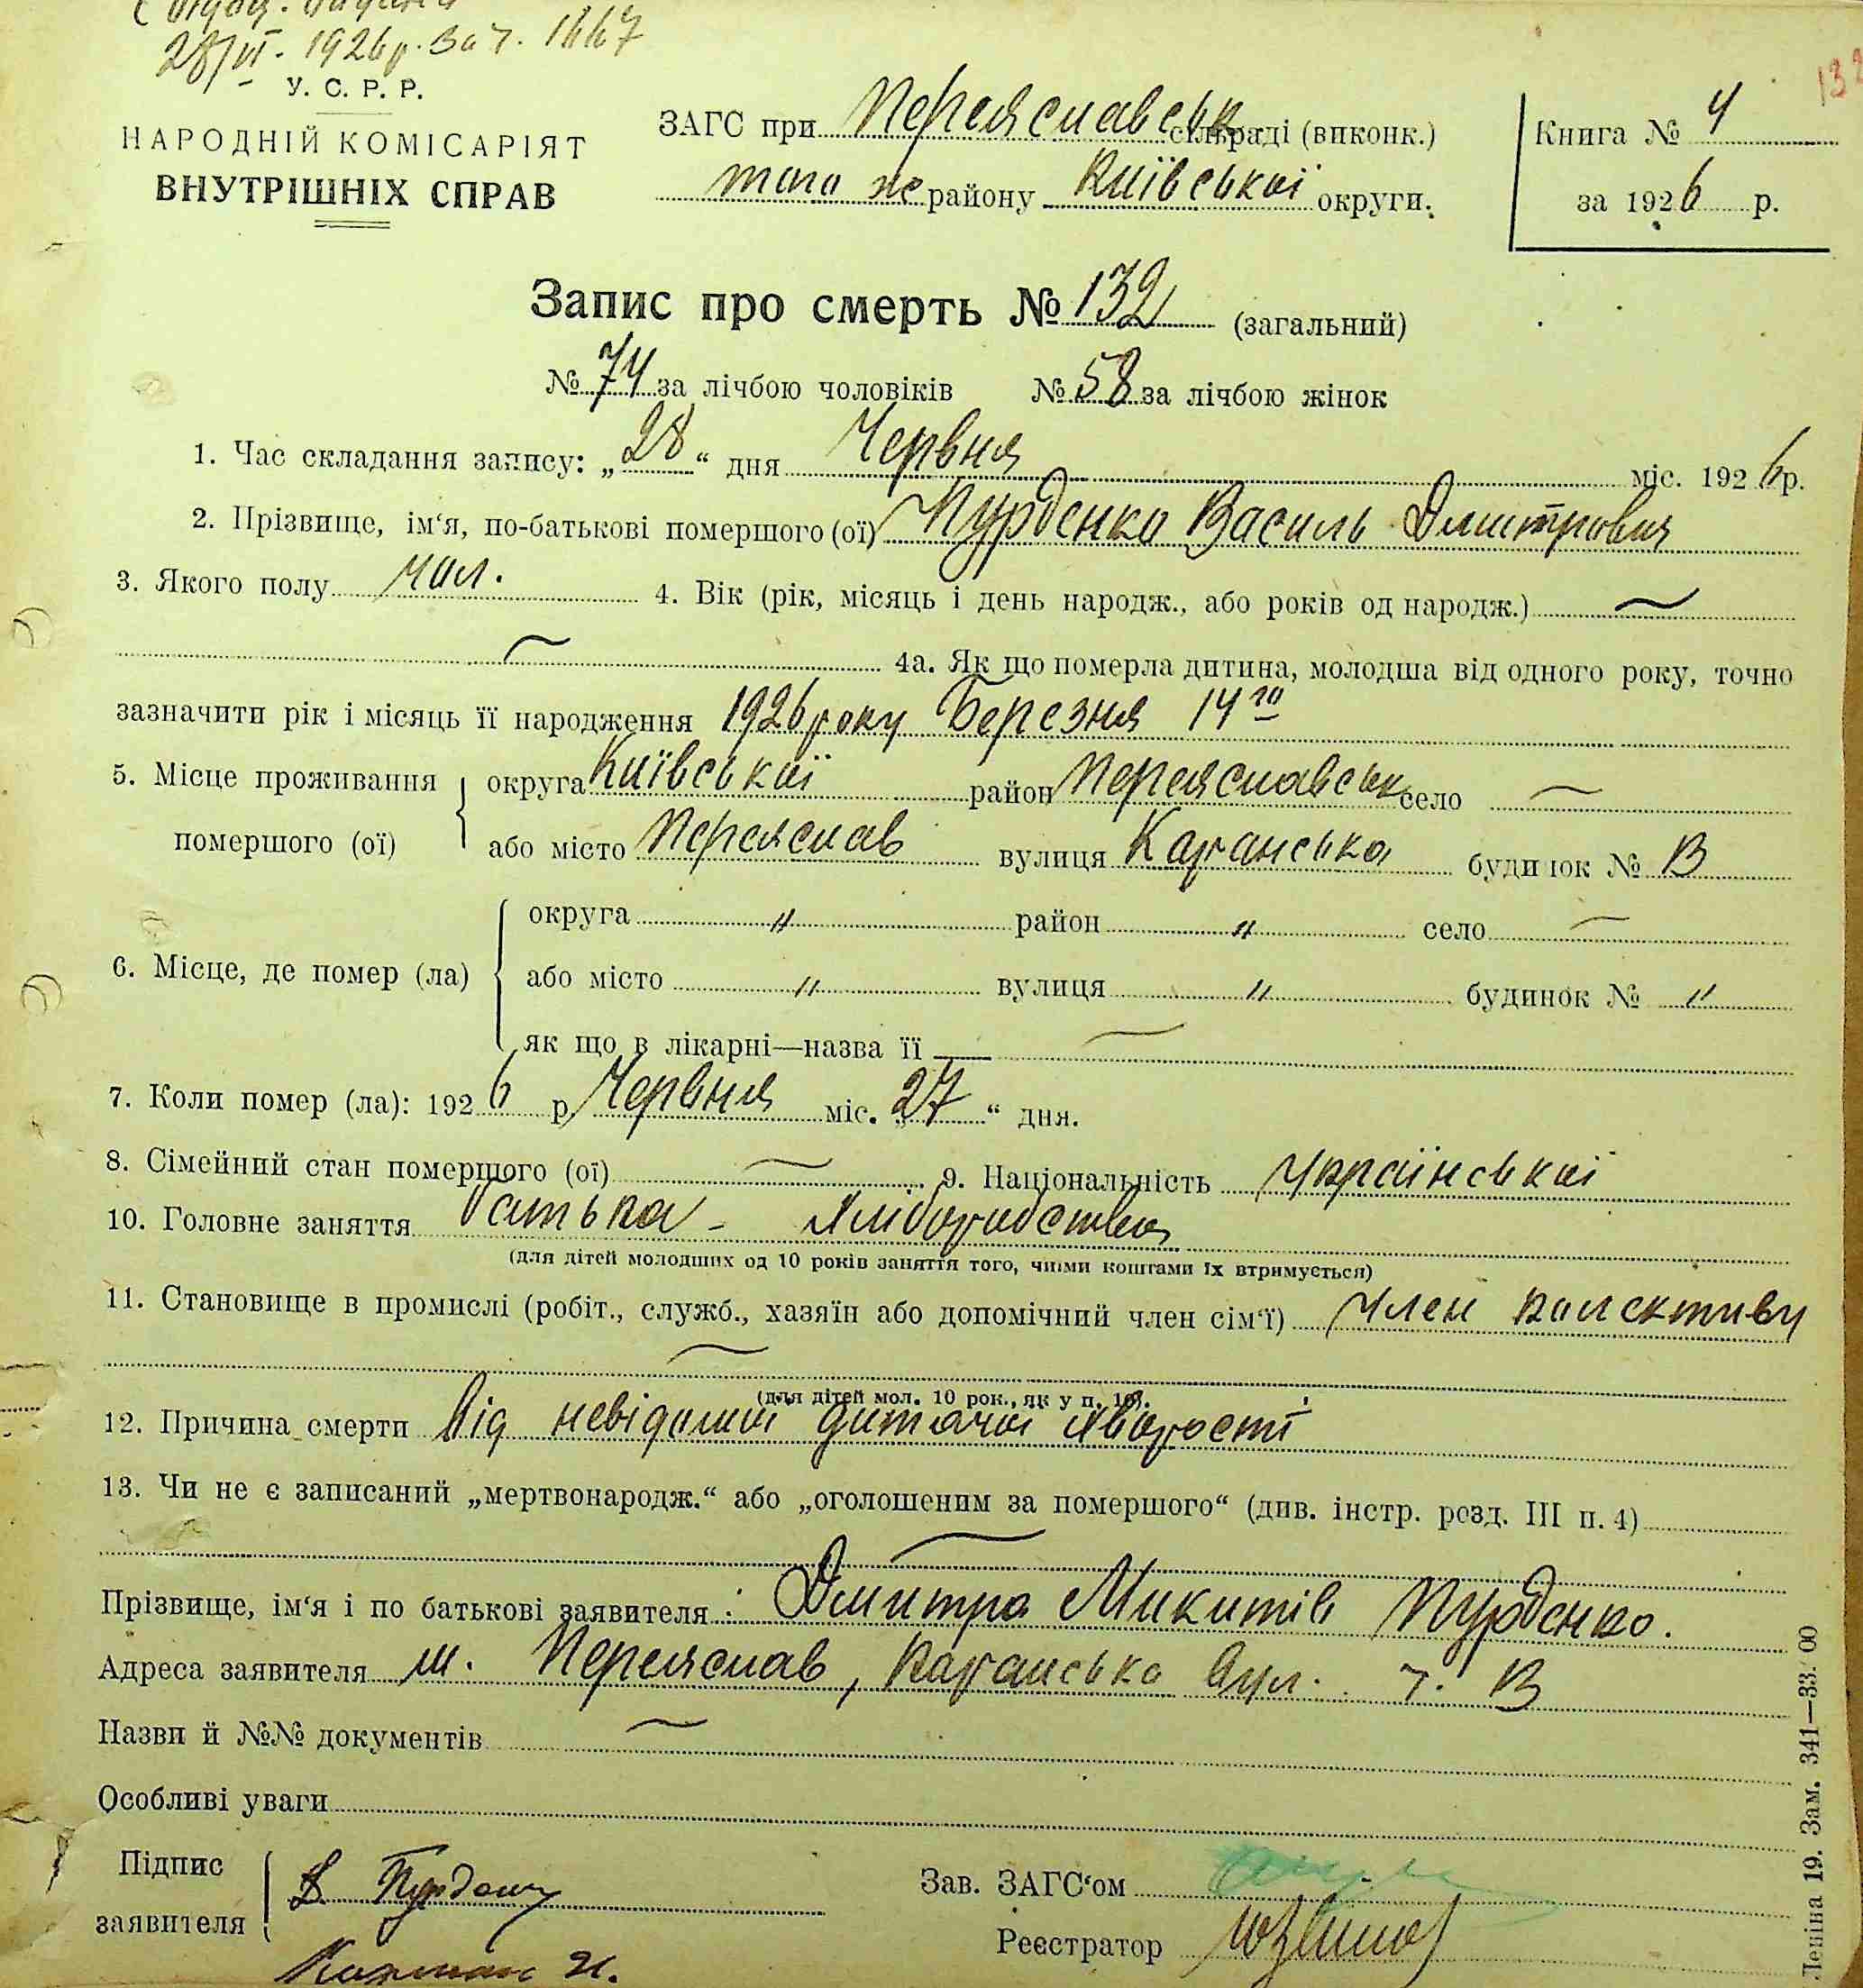 28/VI. 1926 р. За ч. 1667
132
У. С. Р. Р.
НАРОДНІЙ КОМІСАРІЯТ
ВНУТРІШНІХ СПРАВ
ЗАГС при Переяславськ сільраді (виконк.)
того ж району Київської округи.
Книга № 4
за 1926 р.
Запис про смерть № 132 (загальний)
№ 74 за лічбою чоловіків № 58 за лічбою жінок
1. Час складання запису: „28“ дня Червня міс. 1926 р.
2. Прізвище, ім‘я, по-батькові помершого (ої) Пурденко Василь Дмитрович
3. Якого полу чол. 4. Вік (рік, місяць і день народж., або років од народж.) —
— 4а. Як що померла дитина, молодша від одного року, точно
зазначити рік і місяць її народження 1926 року Березня 14го
5. Місце проживання помершого (ої) округа Київської район Переяславськ село —
або місто Переяслав вулиця Каранська будинок № В
6. Місце, де помер (ла) округа " район " село —
або місто " вулиця " будинок № "
як що в лікарні—назва її —
7. Коли помер (ла): 1926 р. Червня міс. „27“ дня.
8. Сімейний стан помершого (ої) — 9. Національність Української
10. Головне заняття Батька - Хліборобство
(для дітей молодших од 10 років заняття того, чиїми коштами їх втримується)
11. Становище в промислі (робіт., служб., хазяїн або допомічний член сім‘ї) Член колективу
—
(для дітей мол. 10 рок., як у п. 10).
12. Причина смерти Від невідомої дитячої хворості
13. Чи не є записаний „мертвонародж.“ або „оголошеним за помершого“ (див. інстр. розд. III п. 4)
—
Прізвище, ім‘я і по батькові заявителя: Дмитро Микитів Пурденко.
Адреса заявителя м. Переяслав, Каранська вул. ч. В
Назви й №№ документів —
Особливі уваги
Підпис заявителя Д Пурденк
Зав. ЗАГС‘ом
Реєстратор
Леніна 19. Зам. 341—33.000